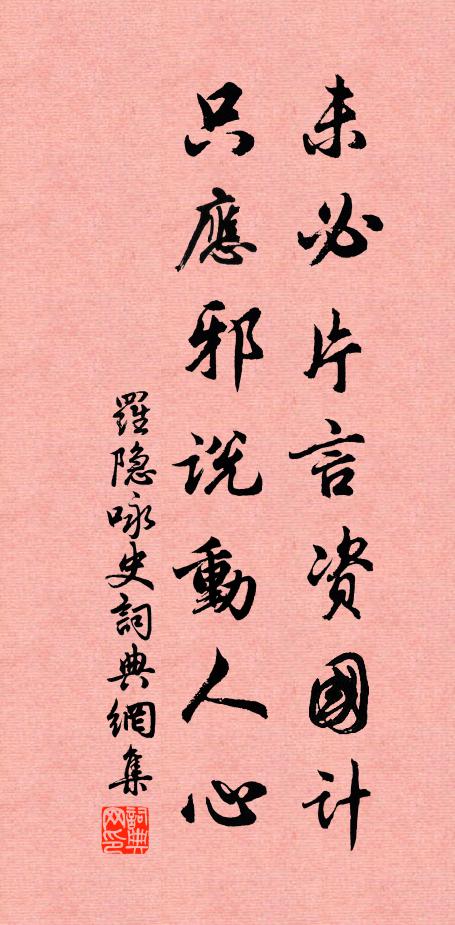 未必片言资國计
只應邪说動人心
羅隐咏史詞典網集
詞典网印